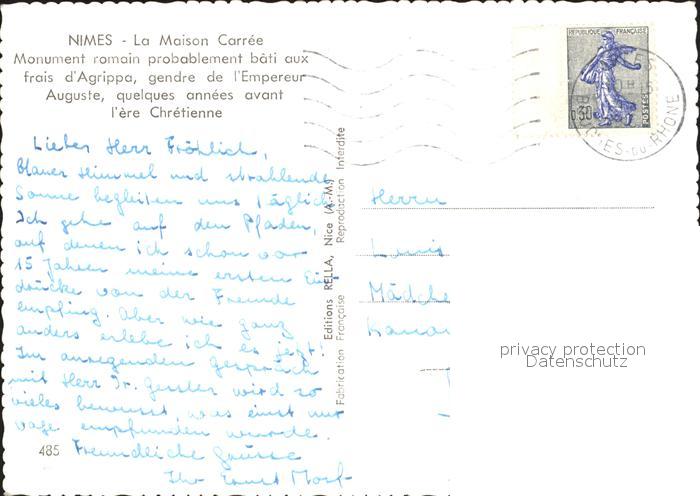 NIMES - La Maison Carrée
Monument romain probablement bâti aux
frais d'Agrippa, gendre de l'Empereur
Auguste, quelques années avant
l'ère Chrétienne
Lieber Herr Fröhlich,
Blauer Himmel und strahlende
Sonne begleiten uns täglich
Ich gehe auf den Pfaden,
auf denen ich schon vor
15 Jahren meine ersten Ein-
drücke von der Fremde
empfing. Aber wie ganz
anders erlebe ich es jetzt!
Im anregenden Gespräch
mit Herr Dr. Gessler wird so
vieles bewusst, was einst nur
vage empfunden wurde.
485 Freundliche Grüsse
Ihr Ernst Morf
Editions RELLA, Nice (A.-M.)
Fabrication Française Reproduction Interdite
REPUBLIQUE FRANÇAISE
0,30
POSTES
DU-RHONE
Herrn
Louis
Mädche
privacy protection
Datenschutz